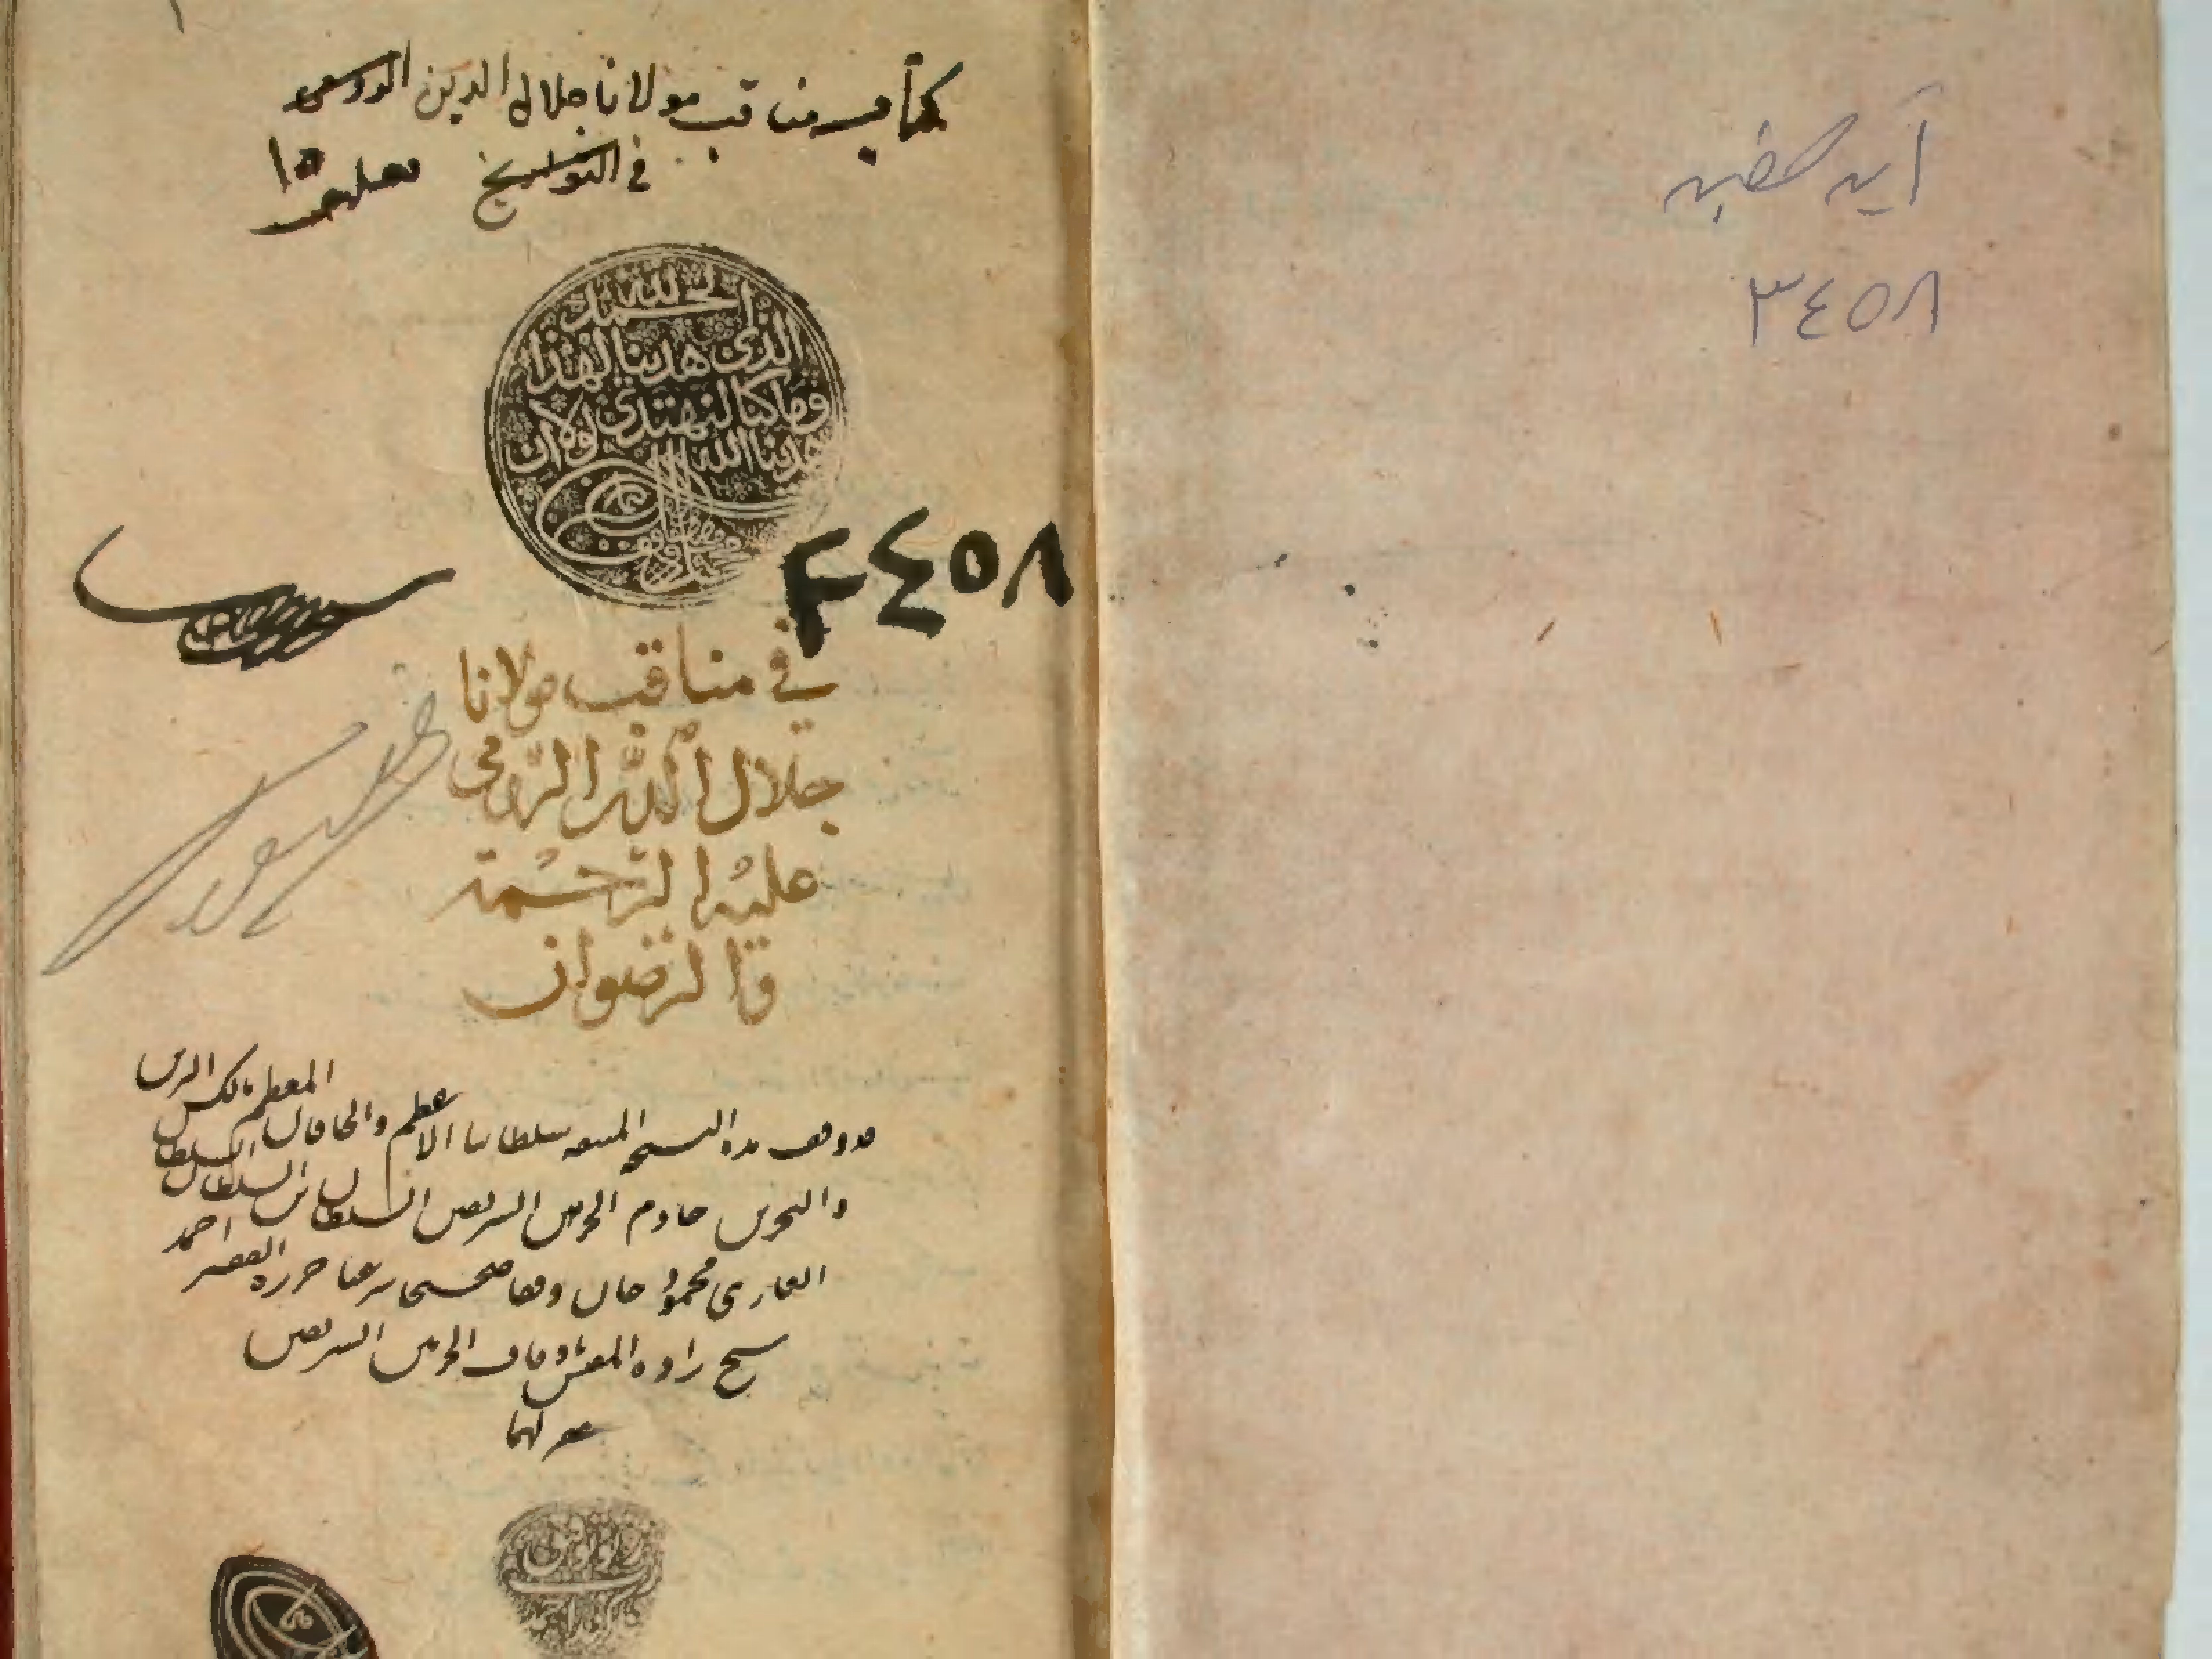 آيه صوفيه
٣٤٥٨
كتاب مناقب مولانا جلال الدين الرومي
في التواريخ
١٥
الحمد لله
الذى هدينا لهذا
وما كنا لنهتدي لولا ان
هدينا الله
٣٤٥٨
في مناقب مولانا
جلال الدين الرومى
عليه الرحمة
والرضوان
قد وقف هذه النسخه سلطاننا الاعظم والخاقان المعظم مالك البرين
والبحرين خادم الحرمين الشريفين السلطان ابن السلطان السلطان
الغازى محمود خان وقفا صحيحا شرعيا حرره الفقير احمد
شيخ زاده المفتش باوقاف الحرمين الشريفين
غفر لهما